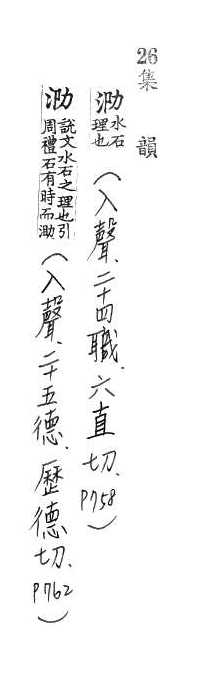 26集韻
泐水石理也(入聲、二十四職、六直切、P758)
泐說文水石之理也引周禮石有時而泐(入聲、二十五德、歷德切、P762)